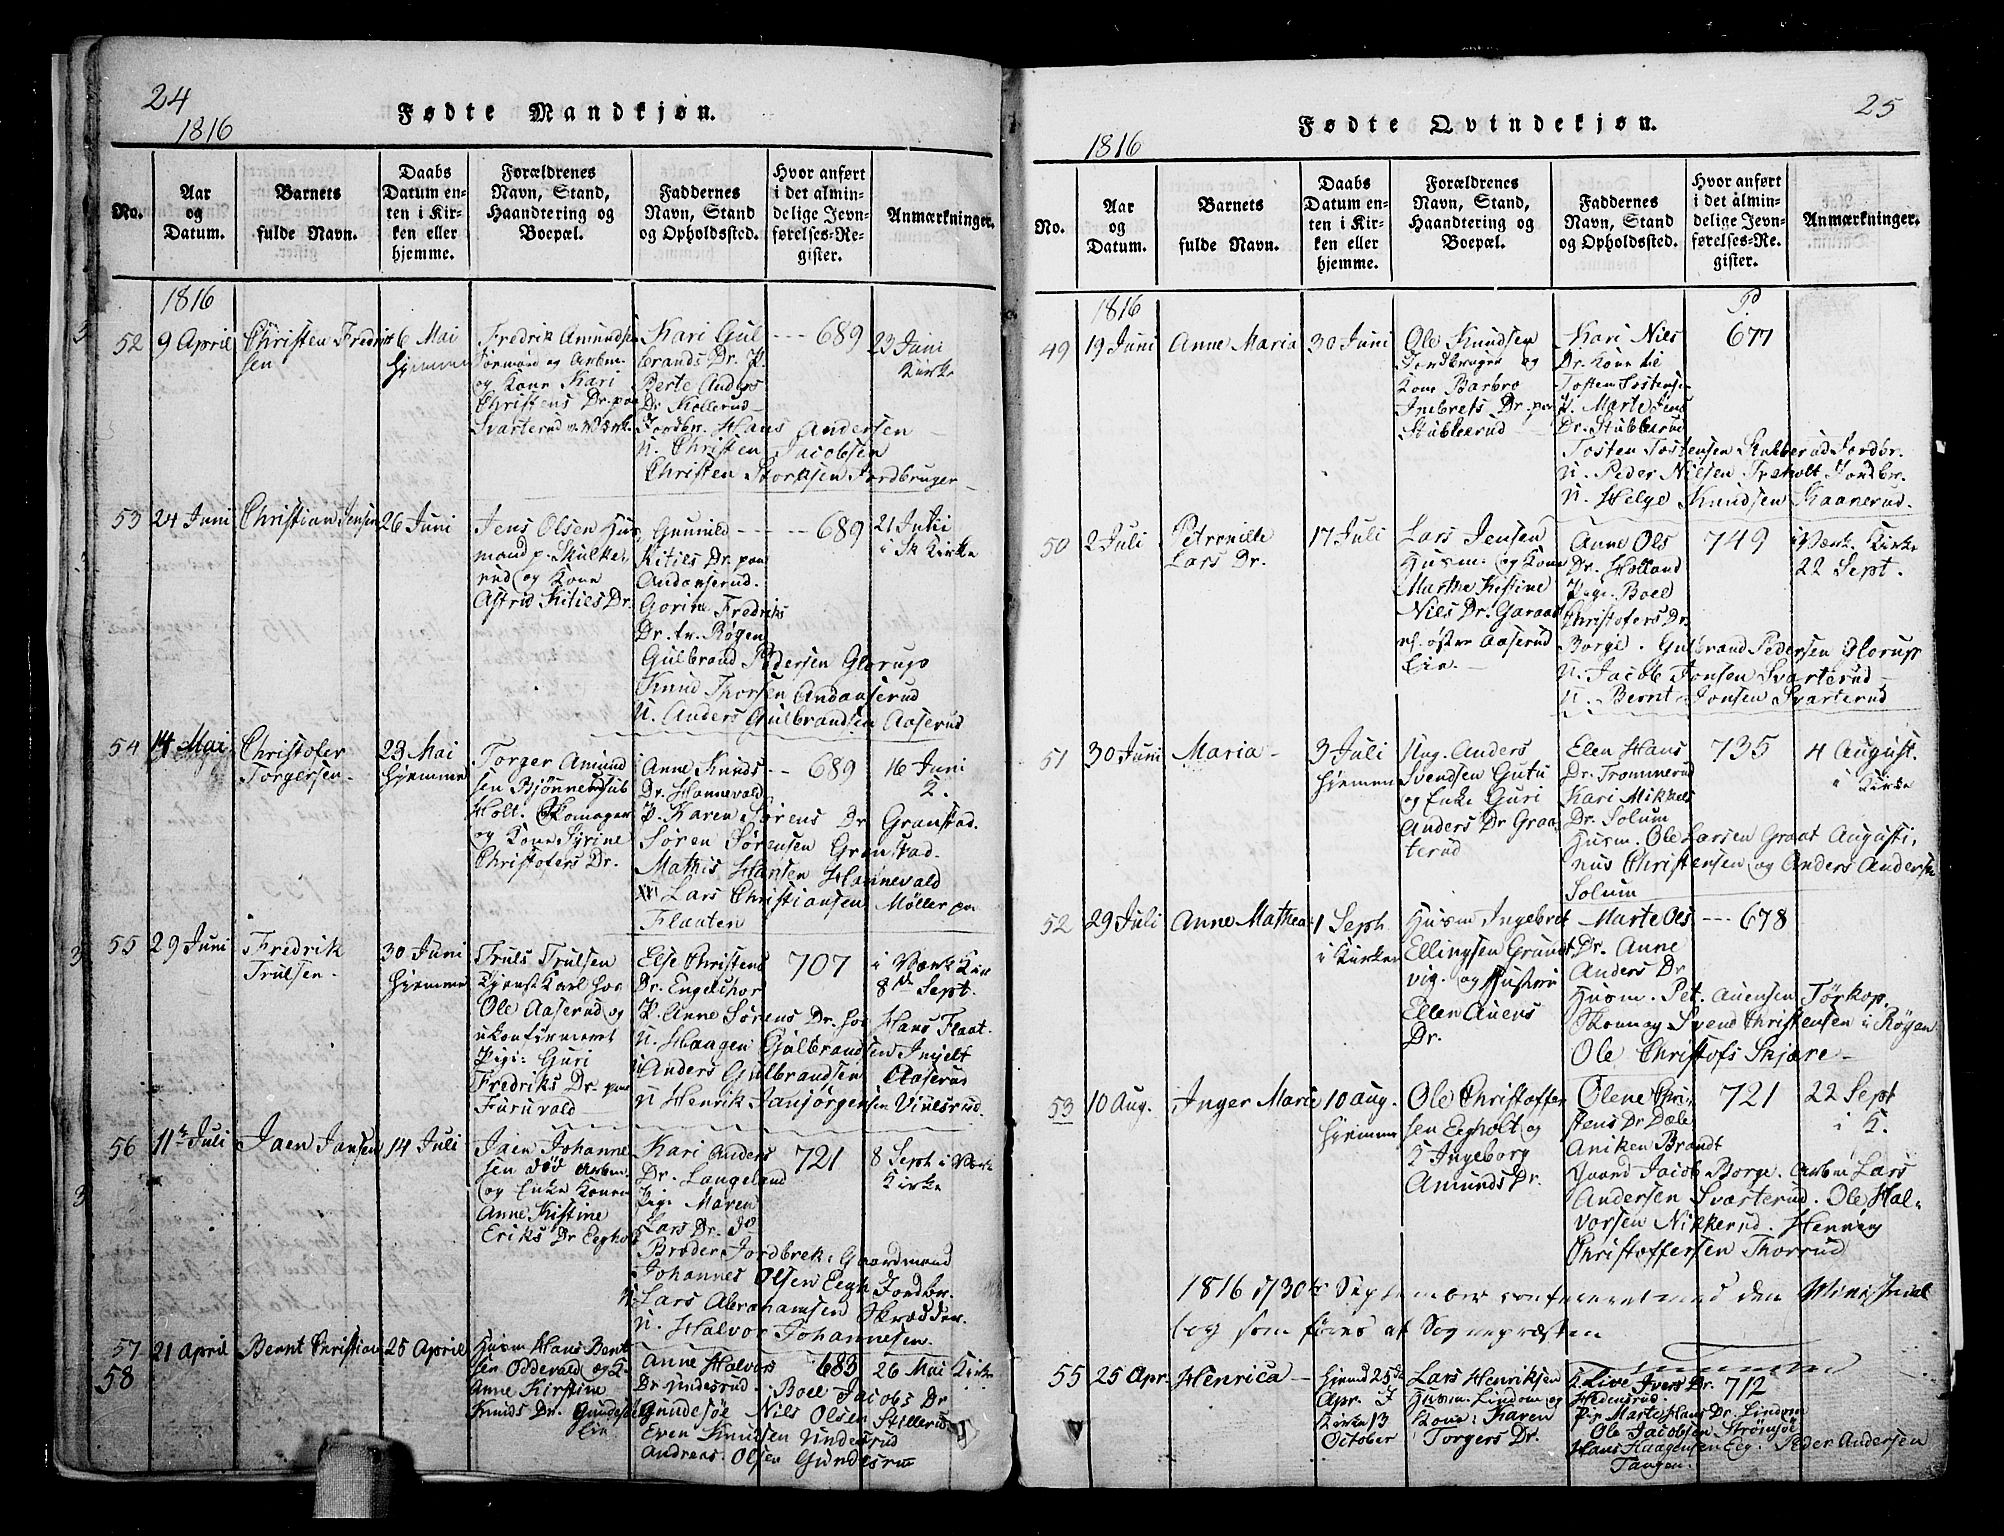 24
1816
Fødte Mandkjøn.
No.
Aar
og
Datum.
Barnets
fulde Navn.
Daabs
Datum en-
ten i Kir-
ken eller
hjemme.
Forældrenes
Navn, Stand,
Haandtering og
Boepæl.
Faddernes
Navn, Stand
og Opholdssted.
Hvor anført
i det almin-
delige Jevn-
førelses-Re-
gister.
Anmærkninger.
1816
52
9 April
Christen Fredrik
sen
6 Mai
hjemme
Fredrik Amundsen
Formand og Arbm.
og Kone Kari
Christens Dr. paa
Svarterud v. Værke
Kari Gul
brands Dr. P.
Berte Anders
Dr Kollerud
Jordbr. Hans Andersen
U. Christen Jacobsen
Christen Jordbruger
689
23 Juni
Kirke
53
24 Juni
Christian Jensen
26 Juni
Jens Olsen Hus
mand p. Skulke
rud og Kone
Astrid Kitils Dr.
Gunnild
Kitils Dr. paa
Andanserud.
Gorine Fredriks
Dr. fr. Bøgen
Gulbrand Pedersen Glorup
Knud Thorsen Andanserud
U. Anders Gulbrandsen Aaserud
689
21 Julii
i Sk Kirke
54
14 Mai
Christofer
Torgersen
23 Mai
hjemme
Torger Amund
sen
Holt. Skomager
og Kone Syrine
Christofers Dr.
Anne Knuds
Dr. Hannevald
P. Karen Sørens Dr Granstad.
Søren Sørensen Granstad.
Mathis Hansen Hannevald
Lars Christiansen Møller paa
Flaaten
689
16 Juni
2.
55
29 Juni
Fredrik
Trulsen
30 Juni
hjemme
Truls Trulsen
Tjenst Karl hos
Ole Aaserud og
ukonfirmeret
Pige: Guri
Fredriks Dr. paa
Furuvald
Else Christens
Dr. Engelshor
P. Anne Sørens Dr. hos Hans Flaat.
U. Haagen Gulbrandsen
Anders Gulbrandsen Aaserud
U Henrik Janjørgensen
707
i Værk Kir
8 Sept.
56
11te Juli
Jaen Jansen
14 Juli
Jaen Johanne
sen død Arbm.
og Enke Konen
Anne Kistine
Eriks Dr Eegholt
Kari Anders
Dr. Langeland
Pige Maren
Lars Dr.
Brøder Jordbrek: Gaardmand
Johannes Olsen Eegh Jordbr.
Lars Abrahamsen Skrædder
U. Halvor Johannesen.
721
8 Sept i Værk
Kirke
57
58
21 April
Bernt Christian
25 April
Husm Hans Bent
sen Oddevald og K
Anne Kirstine
Knuds Dr.
Anne Halvors
Dr Undesrud. Boel Jacobs Dr
Nils Olsen Stillerud
Even Knudsen Undesrud
Andreas Olsen
683
26 Mai Kirke
25
1816
Fødte Qvindekjøn.
No.
Aar
og
Datum.
Barnets
fulde Navn.
Daabs
Datum en-
ten i Kir-
ken eller
hjemme.
Forældrenes
Navn, Stand,
Haandtering og
Boepæl.
Faddernes
Navn, Stand
og Opholdssted.
Hvor anført
i det almin-
delige Jevn-
førelses-Re-
gister.
Anmærkninger.
1816
49
19 Juni
Anne Maria
30 Juni
Ole Knudsen
Jordbruger og
Kone Barbro
Inebrets Dr. paa
Stubberud
Kari Nils
Dr. Kone til
Tosten Tostensen
P. Marte Jens
Dr. Stubberud
Tosten Tostensen Stubberud Jordbr.
U. Peder Nilsen Jordbr.
U. Helge Knudsen Kaanerud.
677
50
2 Juli
Petronille
Lars Dr.
17 Juli
Lars Jensen
Husm: og Kone
Marthe Kistine
Nils Dr. Garaas
østre Aaserud
Eie.
Anne Ols
Dr. Holland
Pige. Boel
Christofers Dr.
Borge. Gulbrand Pedersen Glorup
U. Jacob Jonsen Svarterud
U. Bernt Jonsen Svarterud
749
i Værk. Kirke
22 Sept.
51
30 Juni
Maria
3 Juli
hjemme
Ung. Anders
Svendsen Gutu
og Enke Guri
Anders Dr Graa
terud
Elen Hans
Dr. Trommerud
Kari Mikkels
Dr. Solum
Husm. Ole Larsen Graat Augusti,
nus Christensen og Anders Anderse
Solum
735
4 August.
i Kirke
52
29 Juli
Anne Mathea
1 Sept
i Kirken
Husm Ingebret
Ellingsen Grundt
vig. og Hustru
Ellen Auens
Dr.
Marte Ols
Dr. Anne
Anders Dr
Husm. Pet. Auensen Törkop,
Skomag Svend Christensen i Røgen
Ole Christofs Skjære
678
53
10 Aug.
Inger Marie
10 Aug.
hjemme
Ole Christoffer
sen Eegholt og
K Ingeborg
Amunds Dr.
Olene Chri
stens Dr Dæle
Aniken Brandt
Gaard Jacob Borge. Arbm Lars
Andersen Svarterud. Ole Hal-
vorsen Nikkerud. Henrig
Christoffersen Thorrud
721
22 Sept
i K.
1816 d 30te September confereret med den Ministerial
bog som føres af Sognepræsten
55
25 Apr
Henrica
hjemd 25de
Apr. I
Kirke 13
October
Lars Henriksen
Husm: Lindom og
Kone: Karen
Torgers Dr.
K. Live Ivers Dr.
Hedensrud.
Pig Marte Hans Dr. Lindom
Ole Jacobsen Strömsöe
Hans Haagensen Eeg. Peder Andersen
Tangen.
712